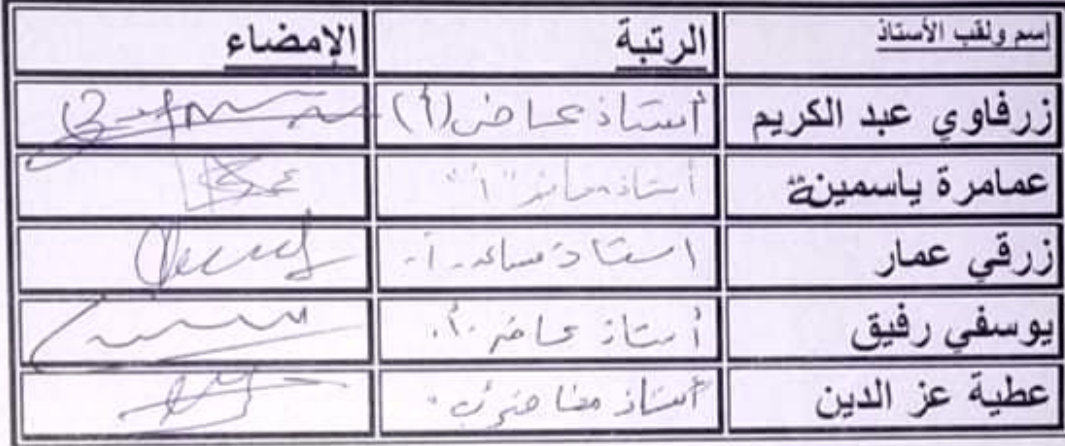 إسم ولقب الأستاذ الرتبة الإمضاء
زرفاوي عبد الكريم أستاذ محاضر (أ)
عمامرة ياسمينة أستاذ محاضر "أ"
زرقي عمار استاذ مساعد -أ-
يوسفي رفيق أستاذ محاضر "أ"
عطية عز الدين أستاذ محاضر ب